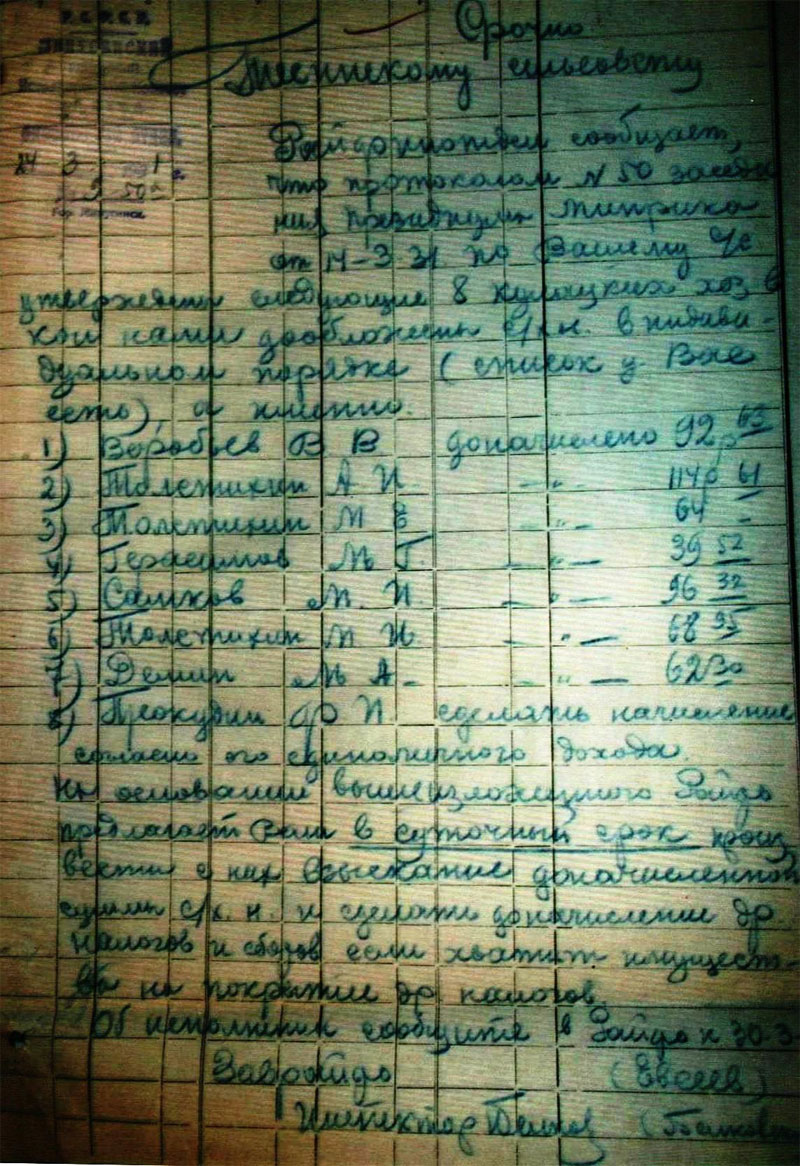 Р.С.Ф.С.Р.
Срочно.
Тесинскому сельсовету
24 3 1 г.
№ 5-50
сообщает,
что протоколом N 50 заседа
ния президиума Минрика
от 14-3 31 по Вашему с/с
утверждены следующие 8 кулацких хоз в
кои нами дообложены с/х.н. в индиви-
дуальном порядке (список у Вас
есть), а именно.
1) Воробьев В В доначислено 92р 63
2) Толстихин А И. —"— 114р 61
3) Толстихин М Е —"— 64 -
4) Герасимов М Г. —"— 39 52
5) Сашков М. И. —"— 96 32
6) Толстихин М И —"— 68 95
7) Демин М А- —"— 62 30
8) Прокудин Ф И сделать начисление
согласно его единоличного дохода.
На основании вышеизложенного Райфо
предлагает Вам в суточный срок произ
вести с них взыскание доначисленной
суммы с/х. н. и сделать доначисление др.
налогов и сборов если хватит имущест-
ва на покрытие др налогов.
Об исполнении сообщите в Райфо к 30-3
Заврайфо (Евсеев)
Инспектор